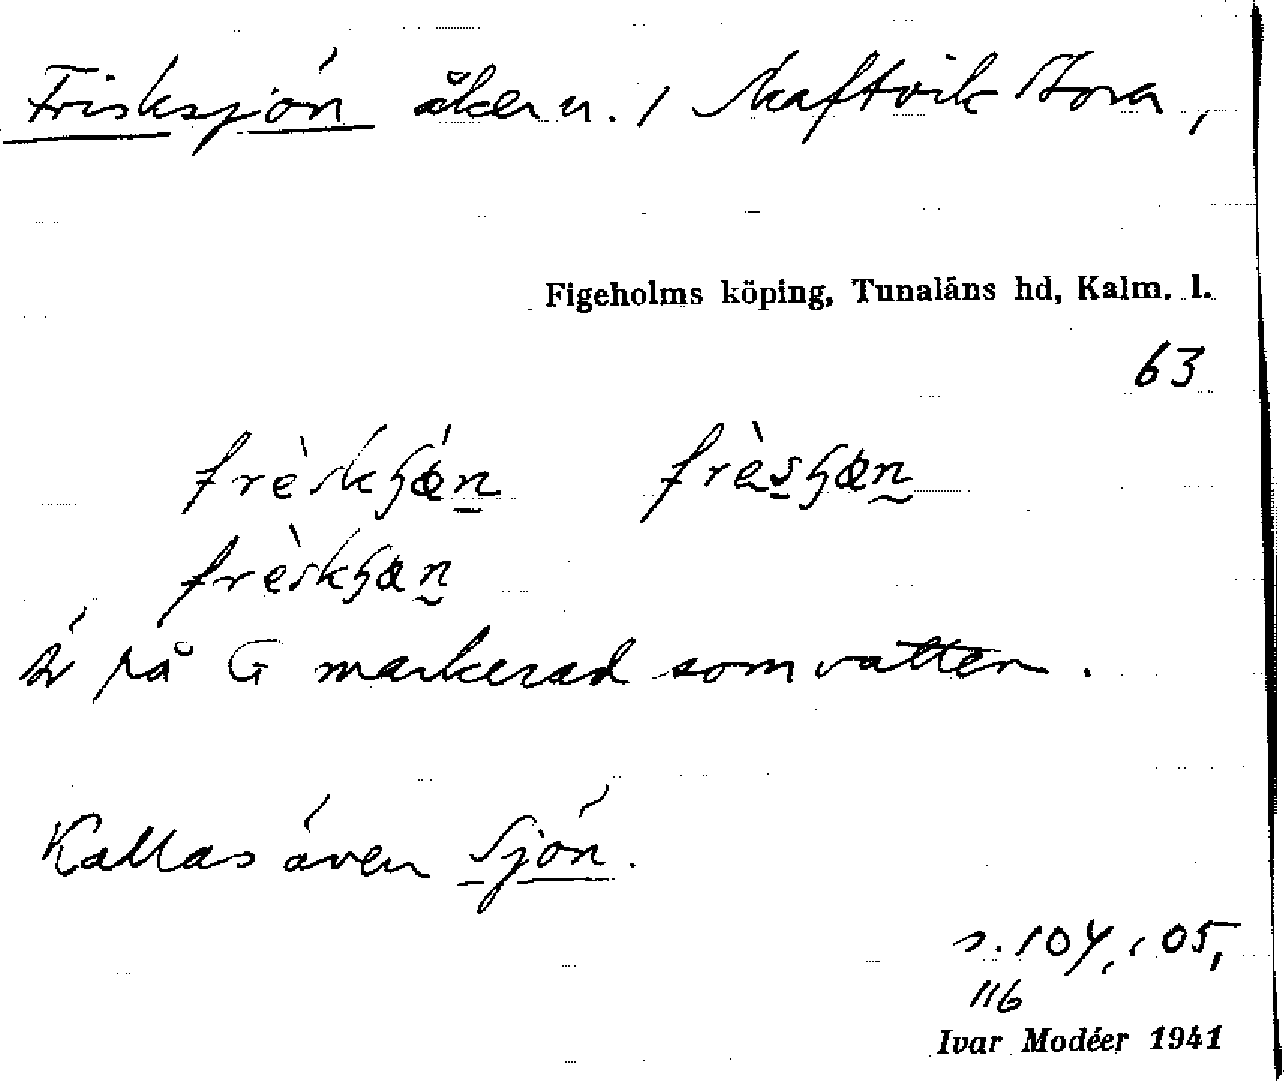 Frisksjön åker u. / Skaftvik Stora,
Figeholms köping, Tunaläns hd, Kalm. l.
63
Är på G markerad som vatten.
Kallas även Sjön.
s. 104, 105,
116
Ivar Modéer 1941